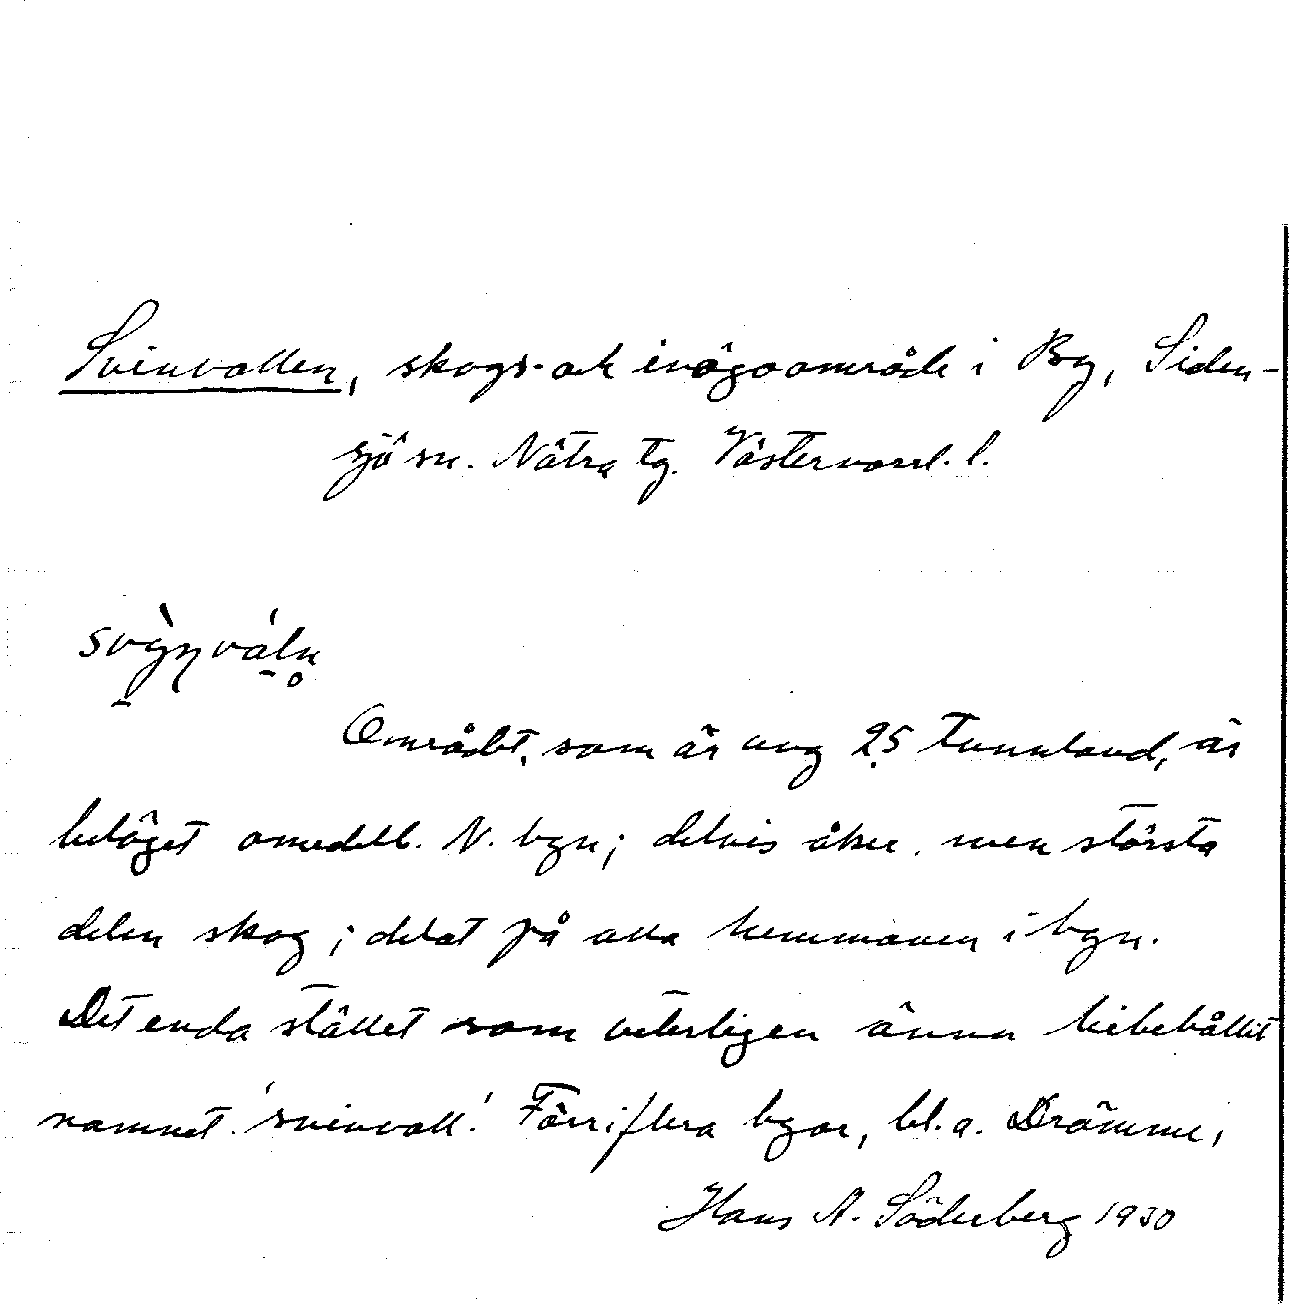 Svinvallen, skogs- och inägoområde i By, Siden-
sjö sn. Nätra tg. Västernorrl. l.
Området, som är ung 25 tunnland, är
beläget omedelb. N. byn; delvis åker, men största
delen skog; delat på alla hemmanen i byn.
Det enda stället som veterligen ännu bibehållit
namnet 'svinvall'. Förr i flera byar, bl.a. Drömme,
Hans A. Söderberg 1930